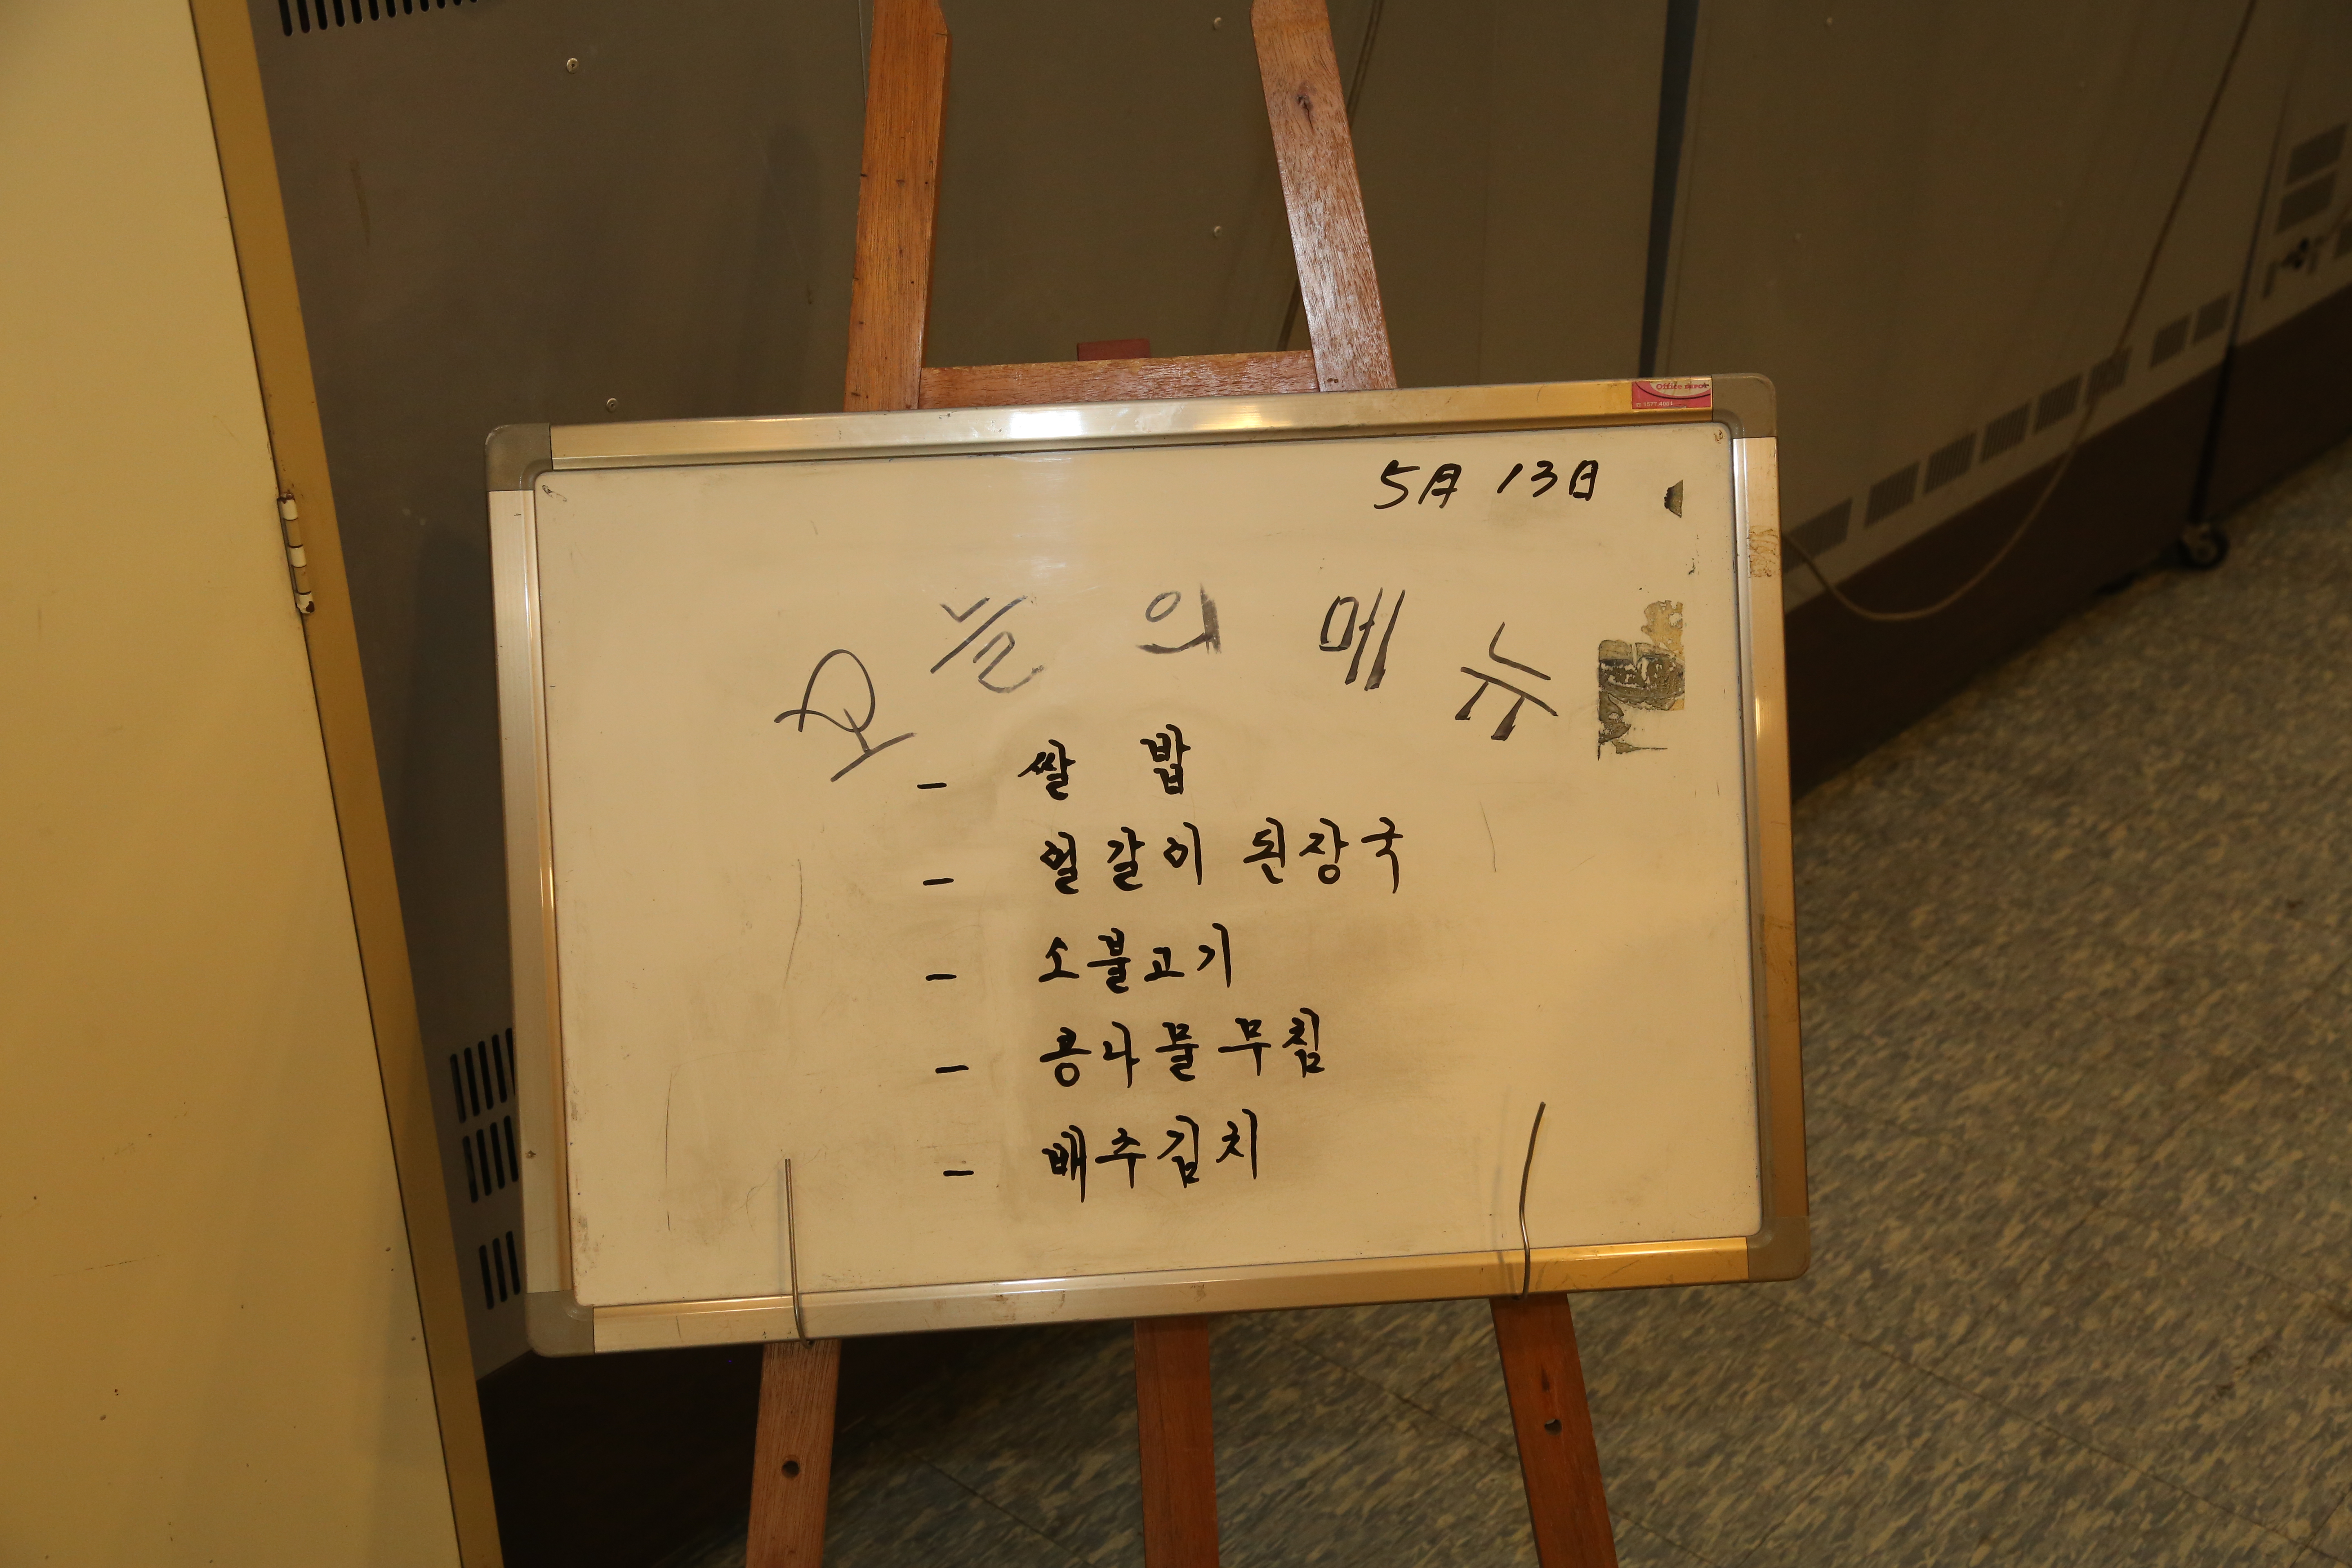 Office DEPOT
5月 13日
오늘의 메뉴
- 쌀 밥
- 얼갈이 된장국
- 소불고기
- 콩나물 무침
- 배추김치